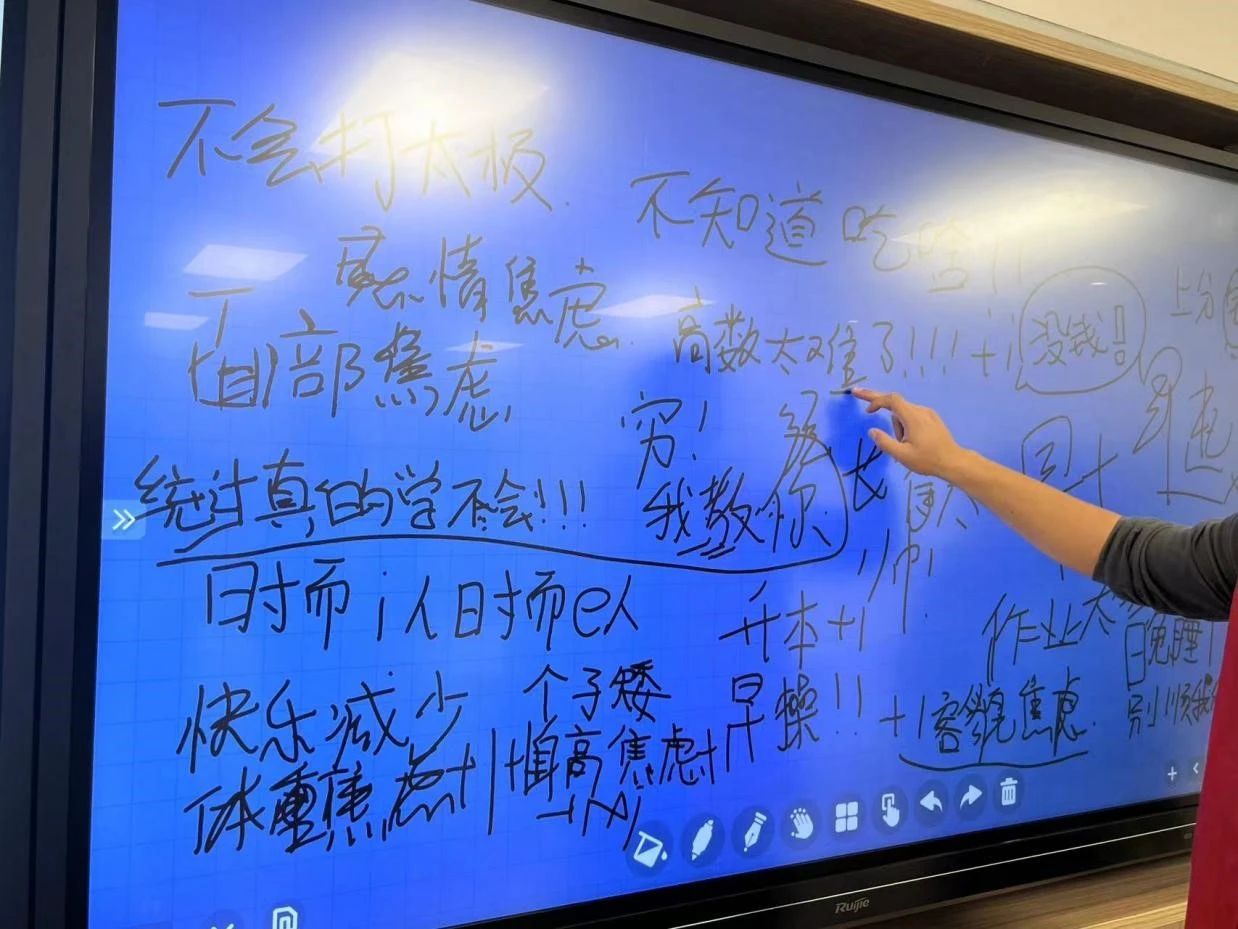 不会打太极
不知道吃啥
感情焦虑
面部焦虑
高数太难了!!! +1
没钱!
上分
穷!
统计真的学不会!!!
我教你
时而i人时而e人
升本+1
帅!
作业太多
快乐减少
个子矮
早操!!
体重焦虑+1
身高焦虑+1
+1容貌焦虑
早晚睡
Ruijie